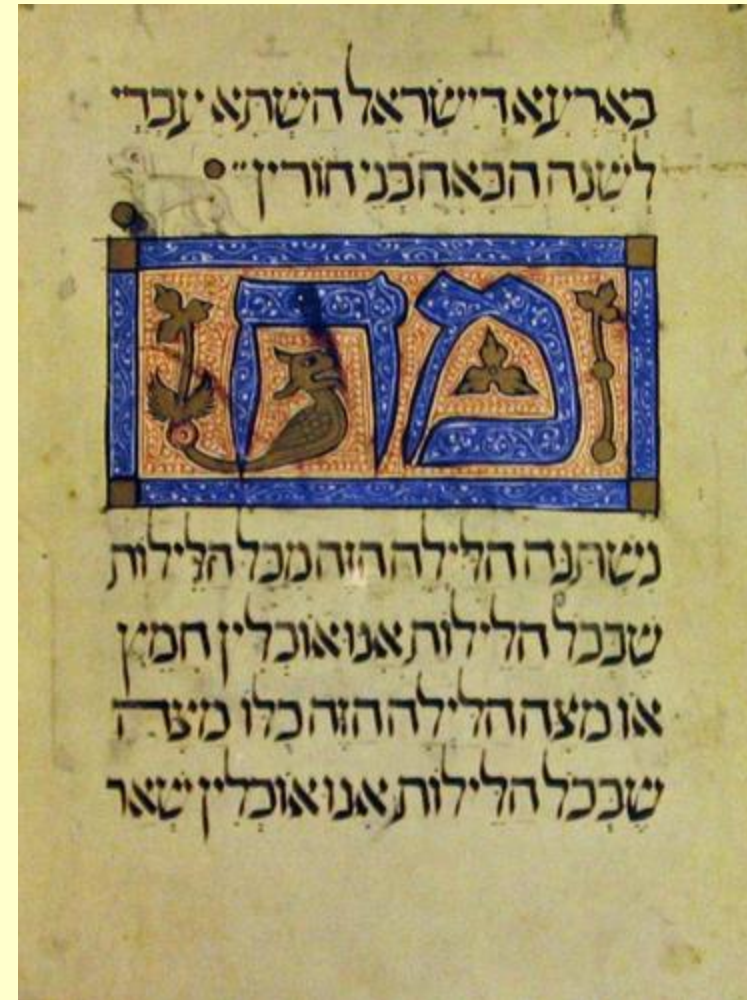 בְּאַרְעָא דְיִשְׂרָאֵל הָשַׁתָּא עַבְדֵי
לְשָׁנָה הַבָּאָה בְּנֵי חוֹרִין
מה
נשתנה הלילה הזה מכל הלילות
שבכל הלילות אנו אוכלין חמץ
או מצה הלילה הזה כלו מצה
שבכל הלילות אנו אוכלין שאר